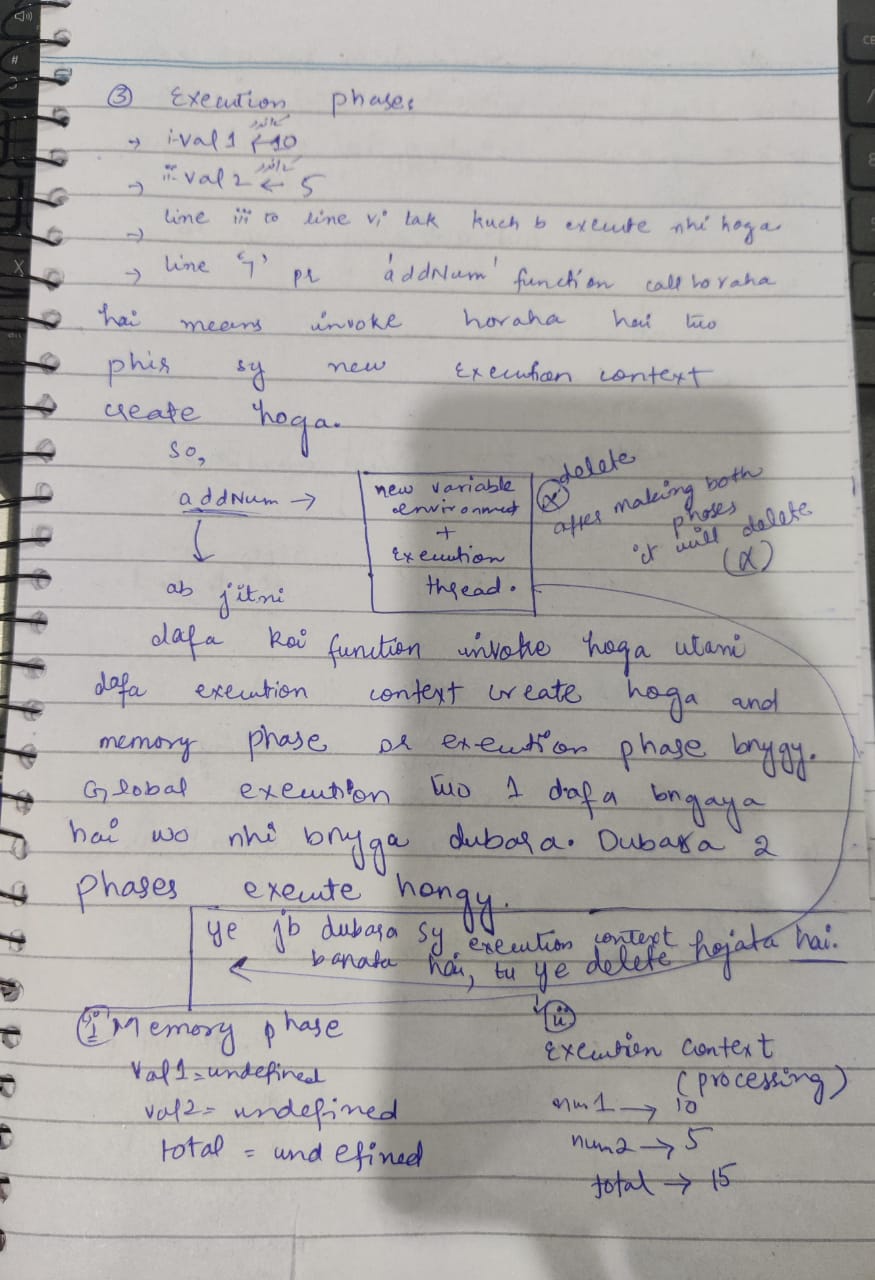 ③ Execution phases
→ i-val 1 ← 10
→ ii- val 2 ← 5
→ line iii to line vi tak kuch b execute nhi hoga.
→ line '7' pr 'addNum' function call ho raha
hai means invoke horaha hai tuo
phir sy new Execution context
create hoga.
so,
addNum →
new variable
environment
+
Execution
thread.
ⓧ delete
after making both
phases
it will delete
(x)
↓
ab jitni
dafa koi function invoke hoga utani
dafa execution context create hoga and
memory phase or execution phase bnygy.
Global execution tuo 1 dafa bngaya
hai wo nhi bnyga dubara. Dubara 2
phases execute hongy.
ye jb dubara sy execution context
banata hai, tu ye delete hojata hai.
ⓘ Memory phase
val1 = undefined
val2 = undefined
total = undefined
ⅱ
Execution context
(processing)
num1 → 10
num2 → 5
total → 15